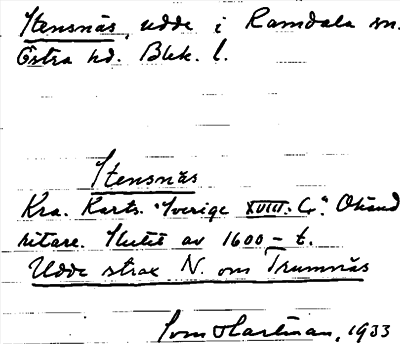 Stensnäs, udde i Ramdala sn.
Östra hd. Blek. l.
Stensnäs
Kra. Karts. "Sverige XVIII: C". Okänd
ritare. Slutet av 1600-t.
Udde strax N. om Trumnäs
Sven Hartman, 1933